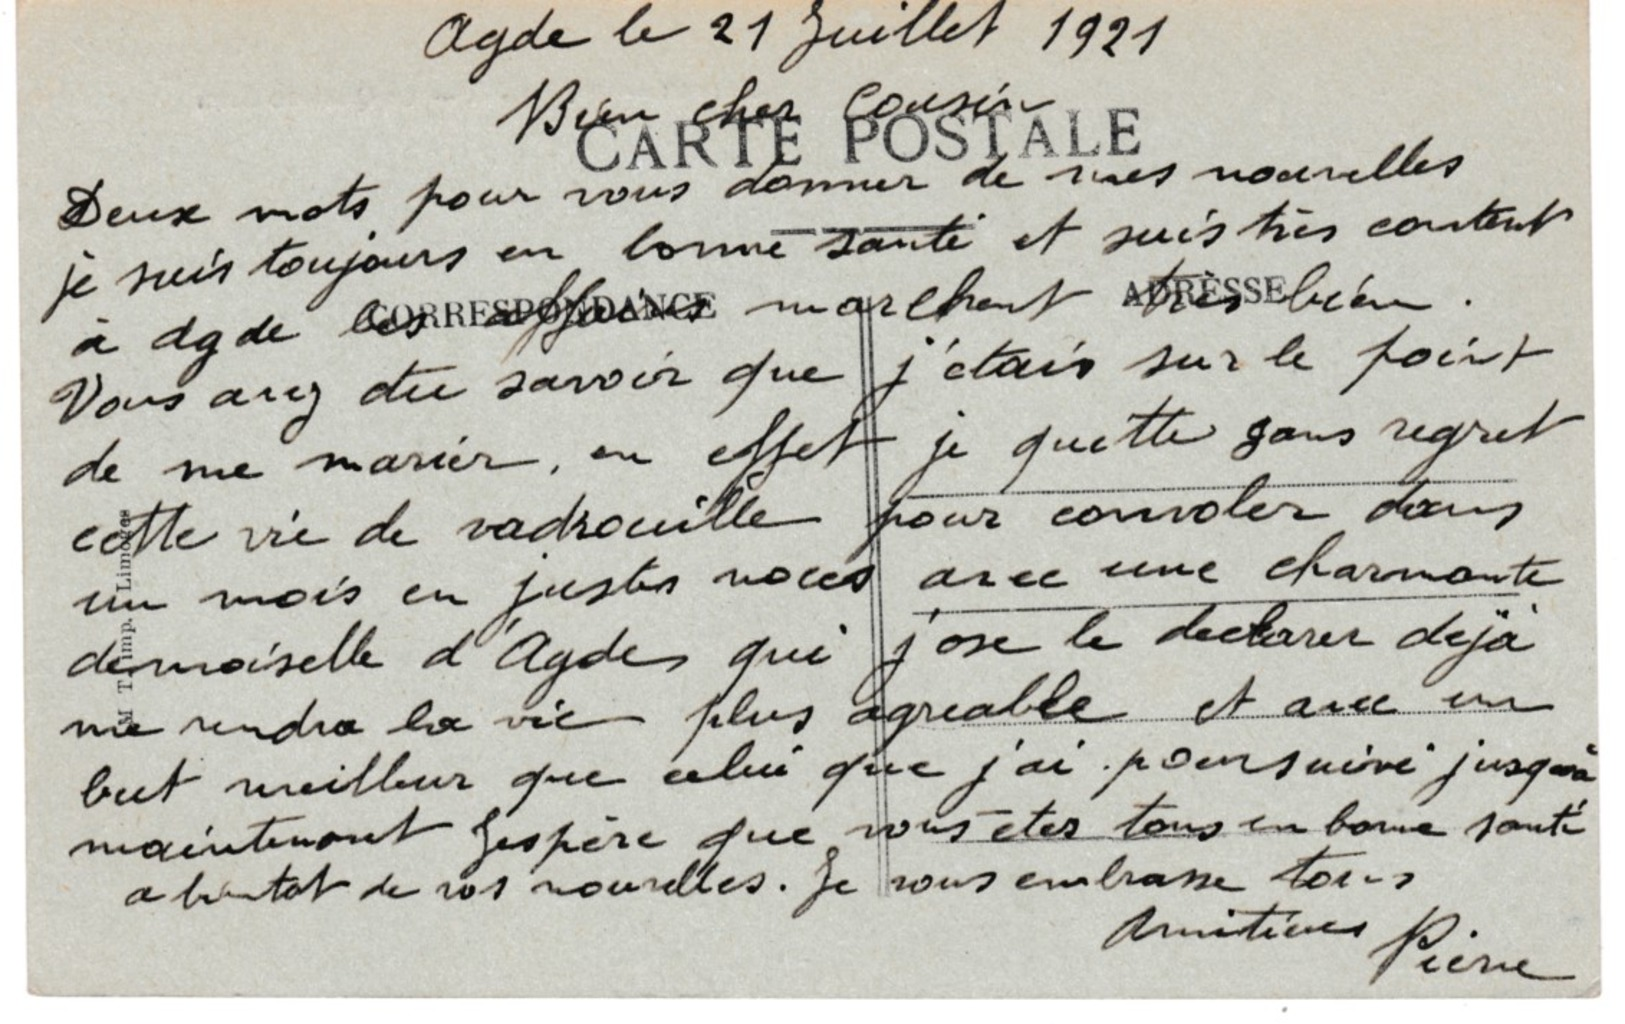 Agde le 21 Juillet 1921
Bien cher Cousin
CARTE POSTALE
Deux mots pour vous donner de mes nouvelles
je suis toujours en bonne santé et suis très content
à Agde les affaires marchent très bien.
CORRESPONDANCE
ADRESSE
Vous avez dû savoir que j'étais sur le point
de me marier, en effet je quitte sans regret
cette vie de vadrouille pour convoler dans
un mois en justes noces avec une charmante
demoiselle d'Agde, qui j'ose le declarer dejà
me rendra la vie plus agreable et avec un
but meilleur que celui que j'ai poursuivi jusqu'à
maintenant J'espère que vous êtes tous en bonne santé
a bientot de vos nouvelles. Je vous embrasse tous
Amitiées Pierre
Imp. Limoges